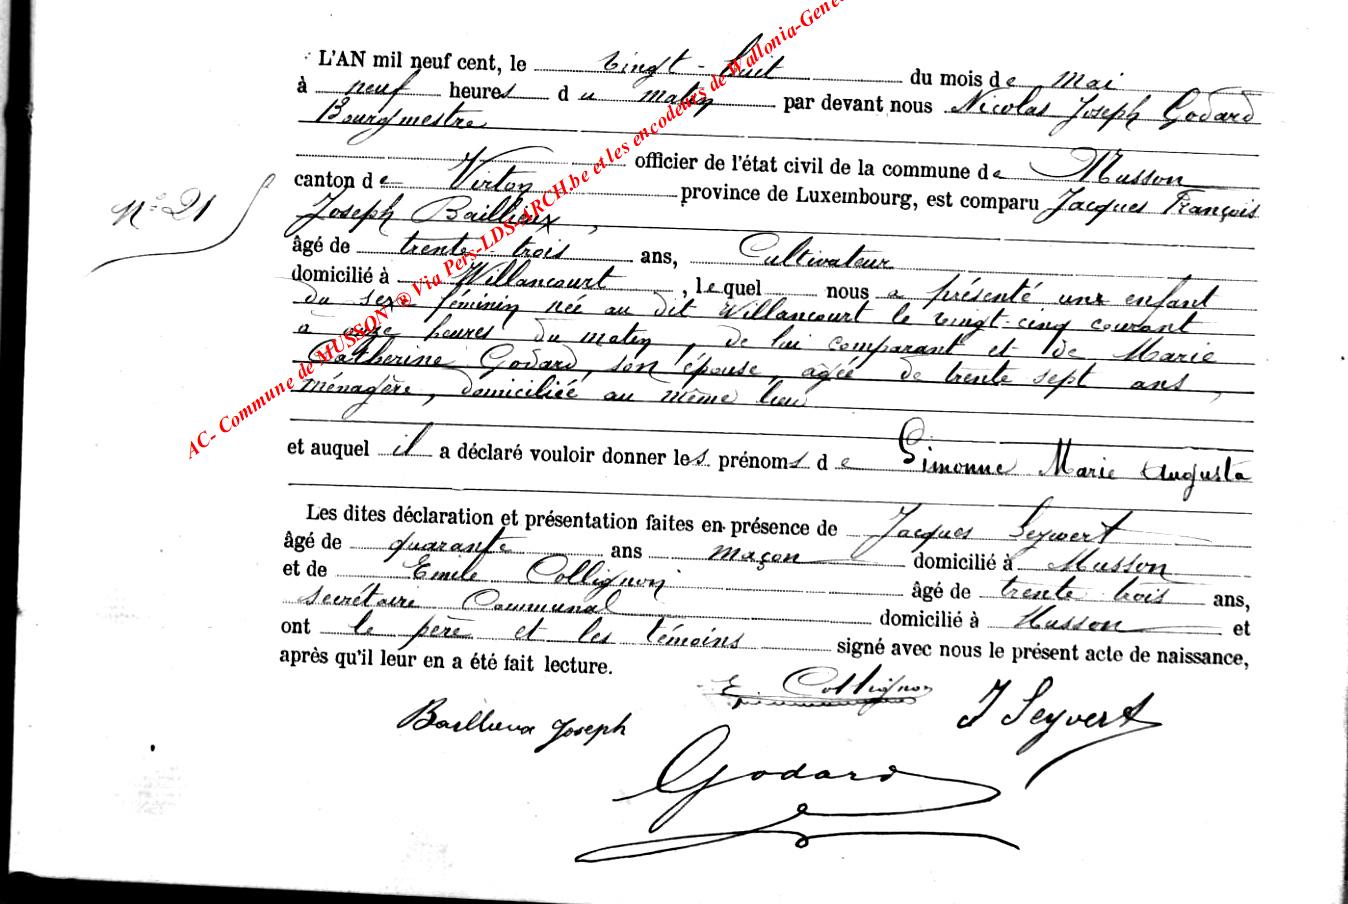 L'AN mil neuf cent, le vingt-huit du mois de mai
à neuf heures du matin par devant nous Nicolas Joseph Godard
Bourgmestre
officier de l'état civil de la commune de Musson
canton de Virton province de Luxembourg, est comparu Jacques François
N° 21
Joseph Baillieux,
âgé de trente trois ans, Cultivateur
domicilié à Willancourt, lequel nous a présenté une enfant
du sexe féminin née au dit Willancourt le vingt-cinq courant
à onze heures du matin, de lui comparant et de Marie
Catherine Godard, son épouse, agée de trente sept ans,
ménagère, domiciliée au même lieu
et auquel il a déclaré vouloir donner les prénoms de Simonne Marie Augusta
Les dites déclaration et présentation faites en présence de Jacques Seywert
âgé de quarante ans maçon domicilié à Musson
et de Emile Collignon âgé de trente trois ans,
secrétaire Communal domicilié à Musson et
ont le père et les témoins signé avec nous le présent acte de naissance,
après qu'il leur en a été fait lecture.
E. Collignon
Baillieux Joseph
J Seyvert
Godard
AC- Commune de MUSSON ® Via Pers-LDS-ARCH.be et les encodeurs de Wallonia-Gene